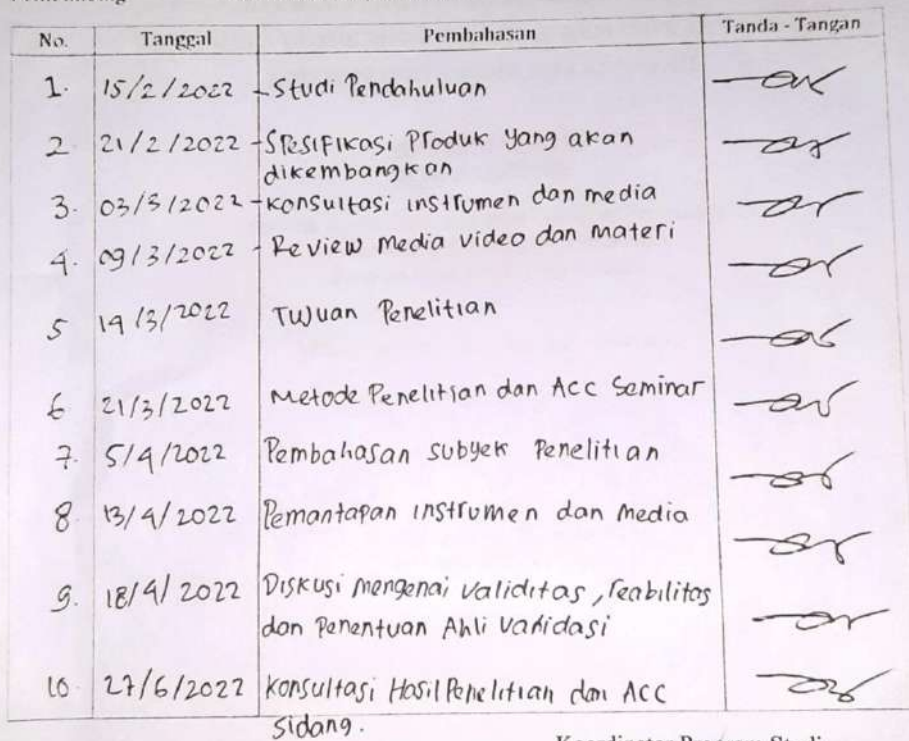 No. Tanggal Pembahasan Tanda - Tangan
1. 15/2/2022 - Studi Pendahuluan
2. 21/2/2022 - Spesifikasi Produk yang akan
dikembangkan
3. 03/3/2022 - Konsultasi instrumen dan media
4. 09/3/2022 - Review media video dan materi
5 14/3/2022 Tujuan Penelitian
6 21/3/2022 Metode Penelitian dan Acc Seminar
7. 5/4/2022 Pembahasan subyek Penelitian
8 13/4/2022 Pemantapan instrumen dan media
9. 18/4/2022 Diskusi mengenai validitas, reabilitas
dan Penentuan Ahli Validasi
10. 27/6/2022 Konsultasi Hasil Penelitian dan ACC
sidang.
Koordinator Program Studi